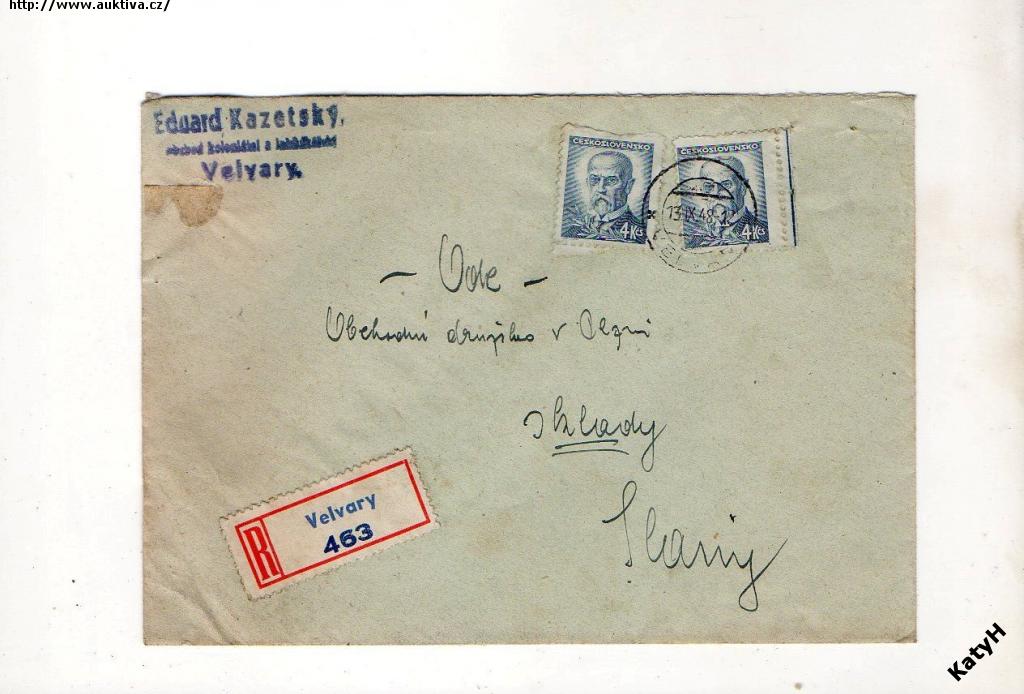 http://www.auktiva.cz/
Eduard Kazetský,
obchod koloniální a lahůdkářský
Velvary.
ČESKOSLOVENSKO
4 Kčs
ČESKOSLOVENSKO
4 Kčs
13.IX.48-
- Vde -
Obchodní družstvo v Plzni
sklady
Slaný
R
Velvary
463
KatyH